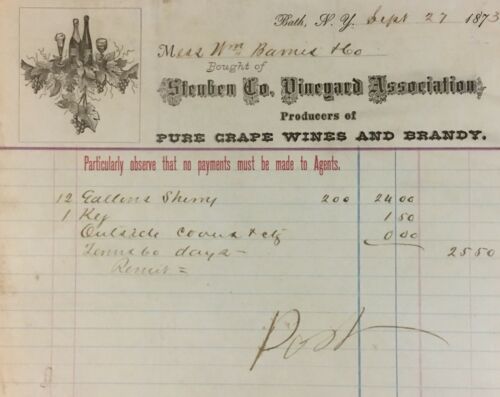 Bath, N. Y. Sept 27 1873
Mess Wm Barnes & Co
Bought of
Steuben Co. Vineyard Association,
Producers of
PURE GRAPE WINES AND BRANDY.
Particularly observe that no payments must be made to Agents.
12 Gallons Sherry 200 24 00
1 Keg 1 50
Outside Covers & ctg 0 00
Terms 60 days - 25 50
Remit =
Post